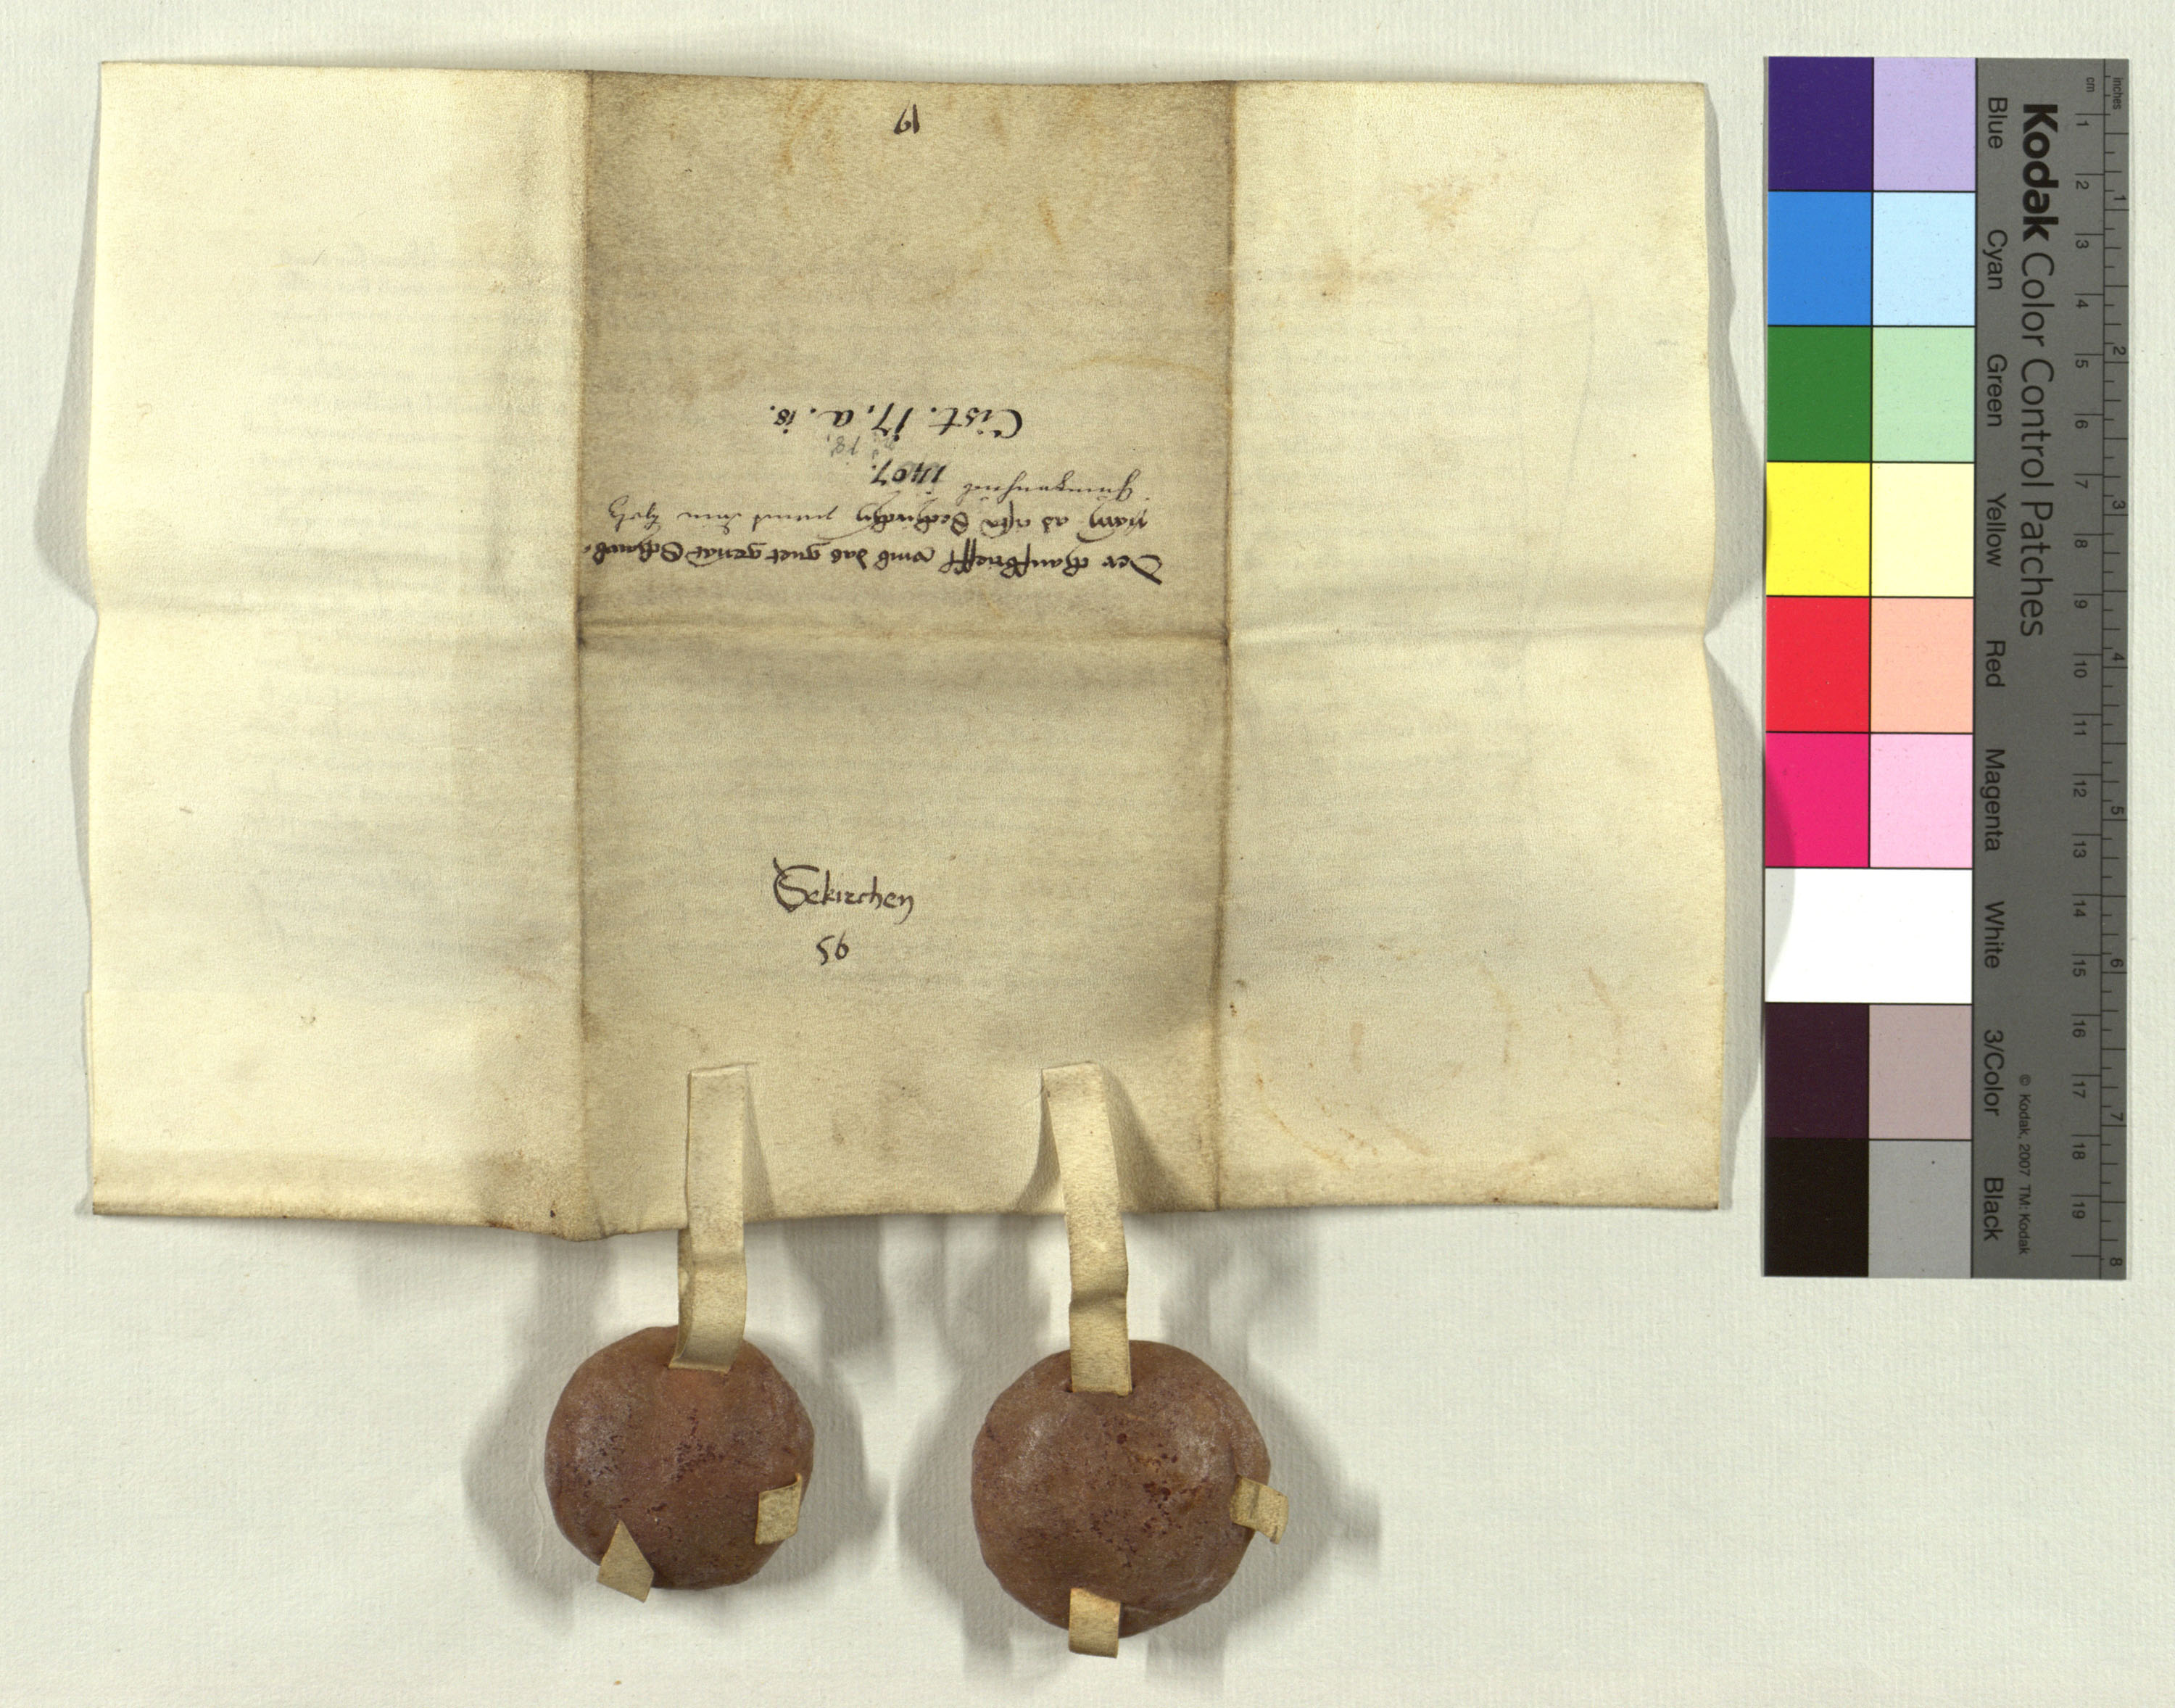 19
Der chaufbrieff vmb das guet genat Schaub
1407.
Cist. 17. a. 18.
Sekirchen
56
Kodak Color Control Patches
Blue Cyan Green Yellow Red Magenta White 3/Color Black
© Kodak, 2007 TM: Kodak
inches 1 2 3 4 5 6 7 8
cm 1 2 3 4 5 6 7 8 9 10 11 12 13 14 15 16 17 18 19